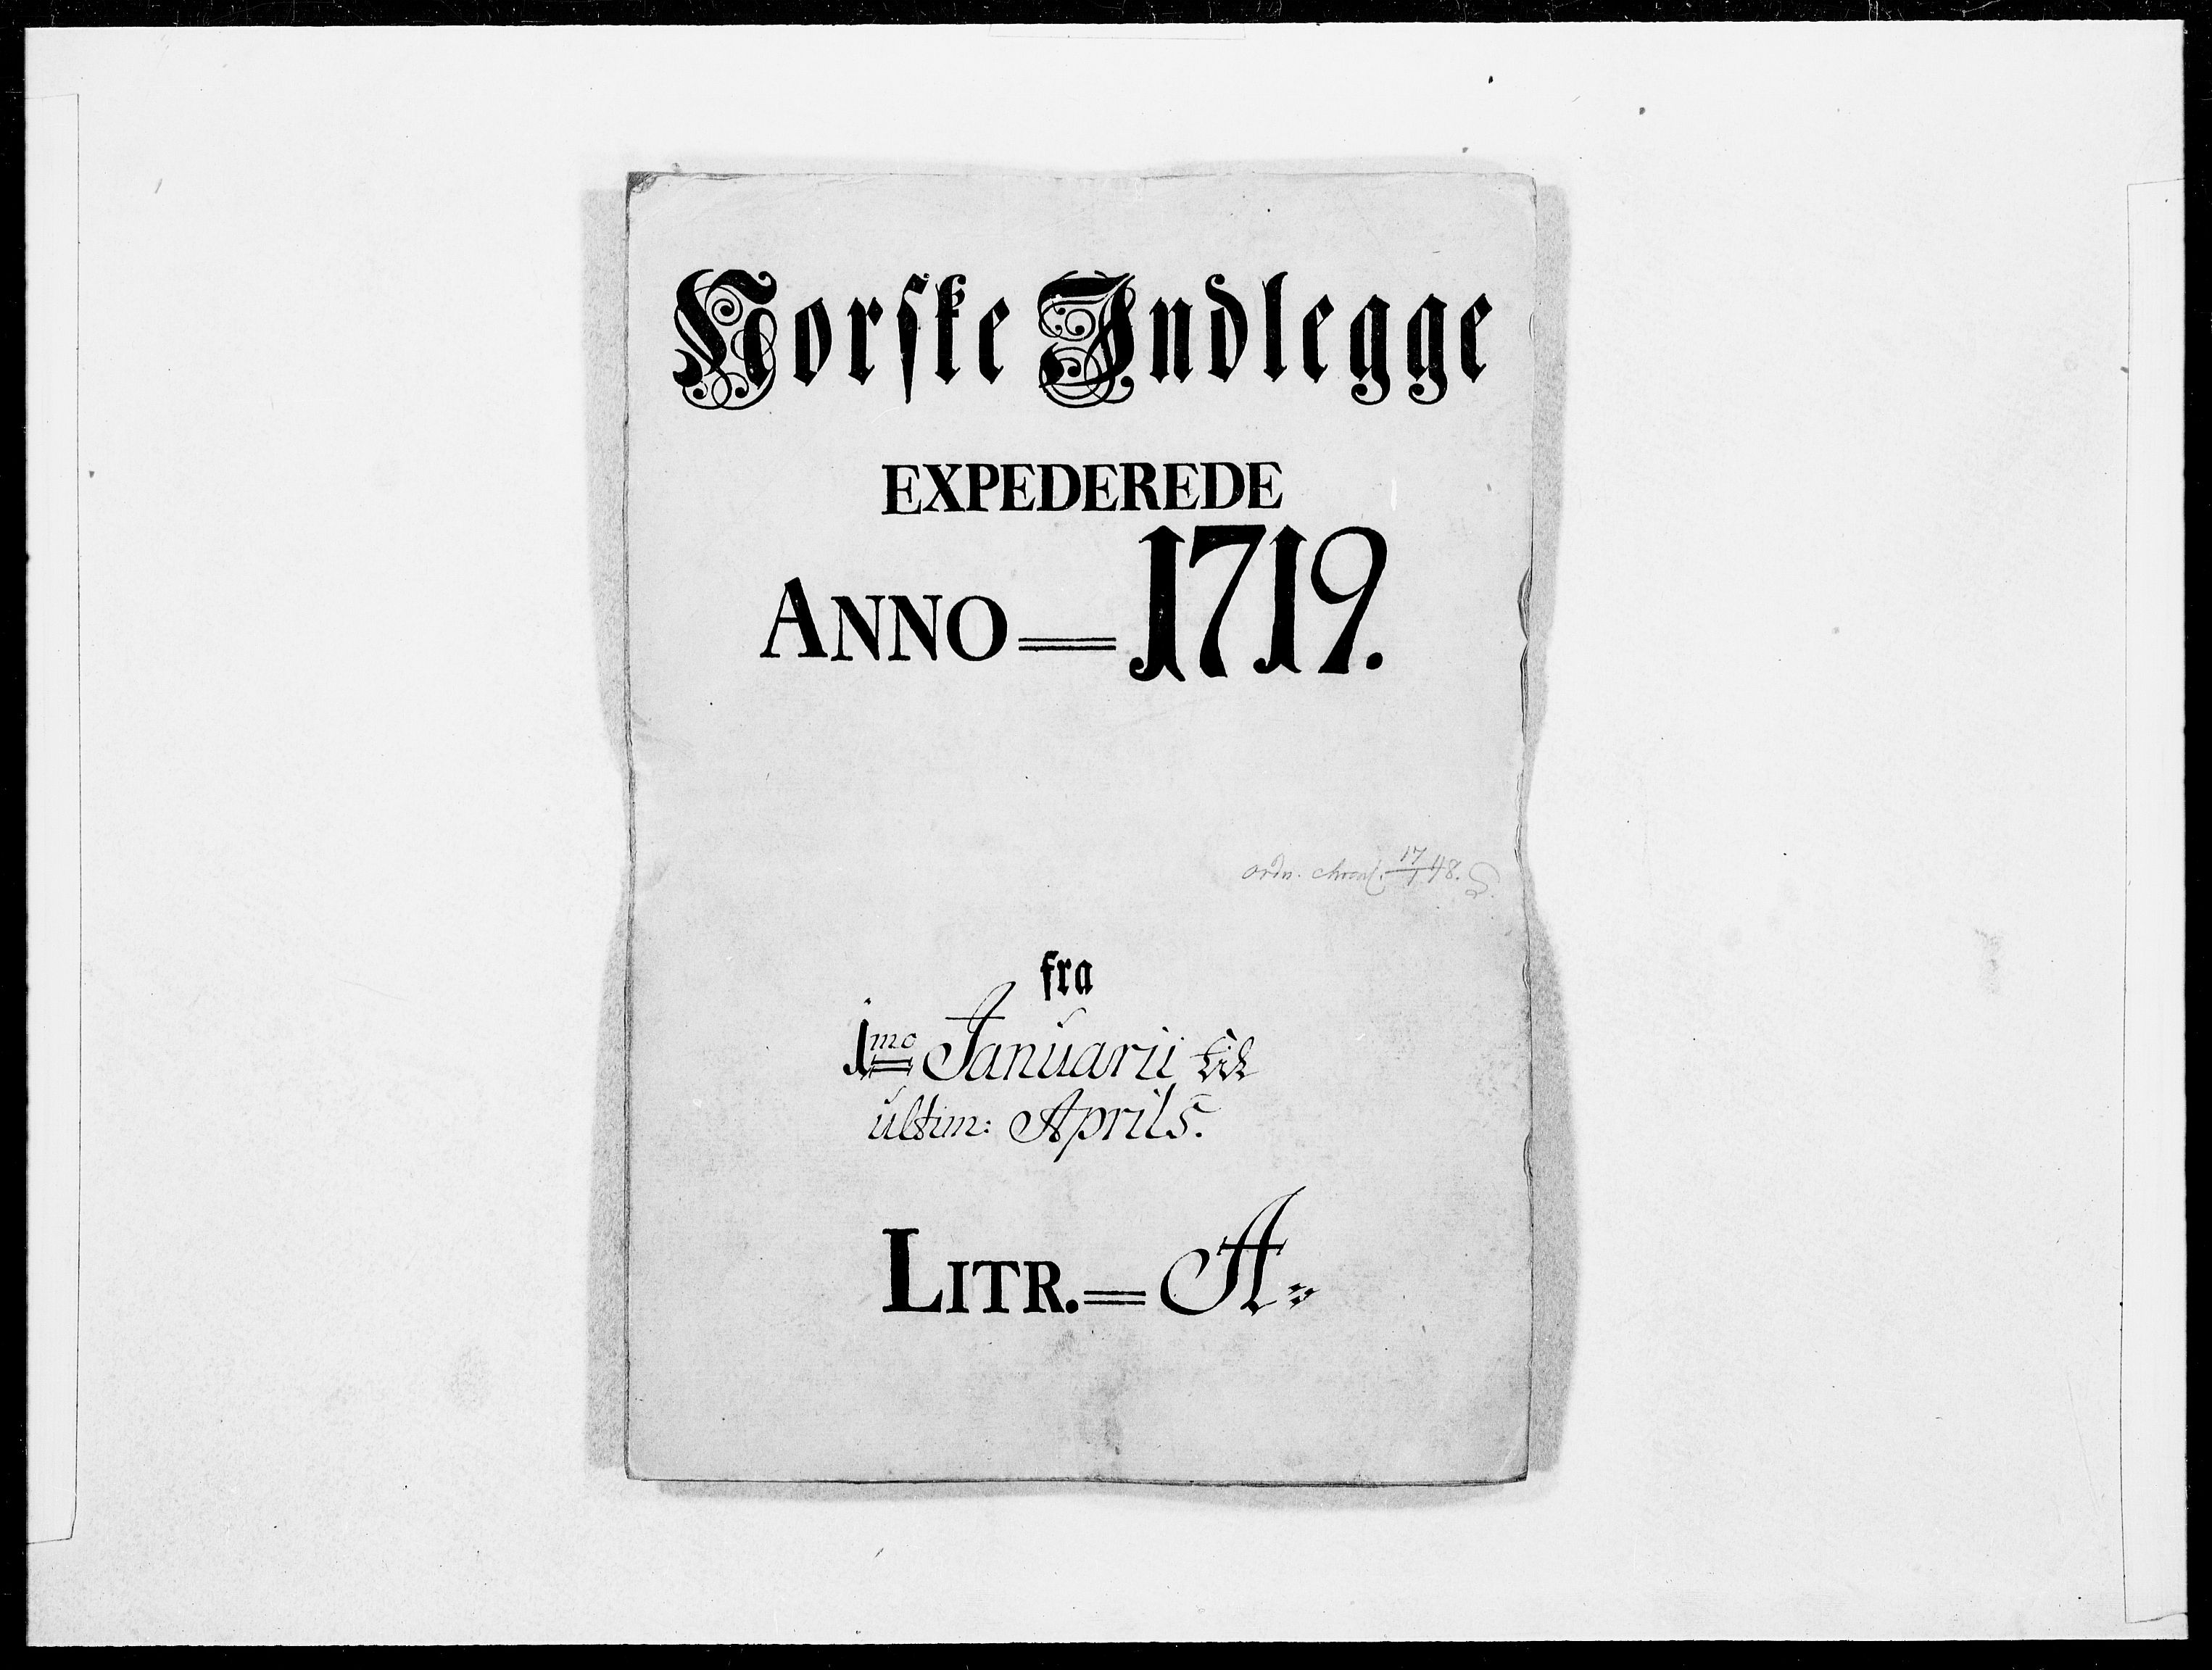 Norske Indlegge
EXPEDEREDE
ANNO = 1719.
ordn. chronl. 17/1 48.
fra
1mo Januarii til
ultim: Aprils.
LITR. = A.